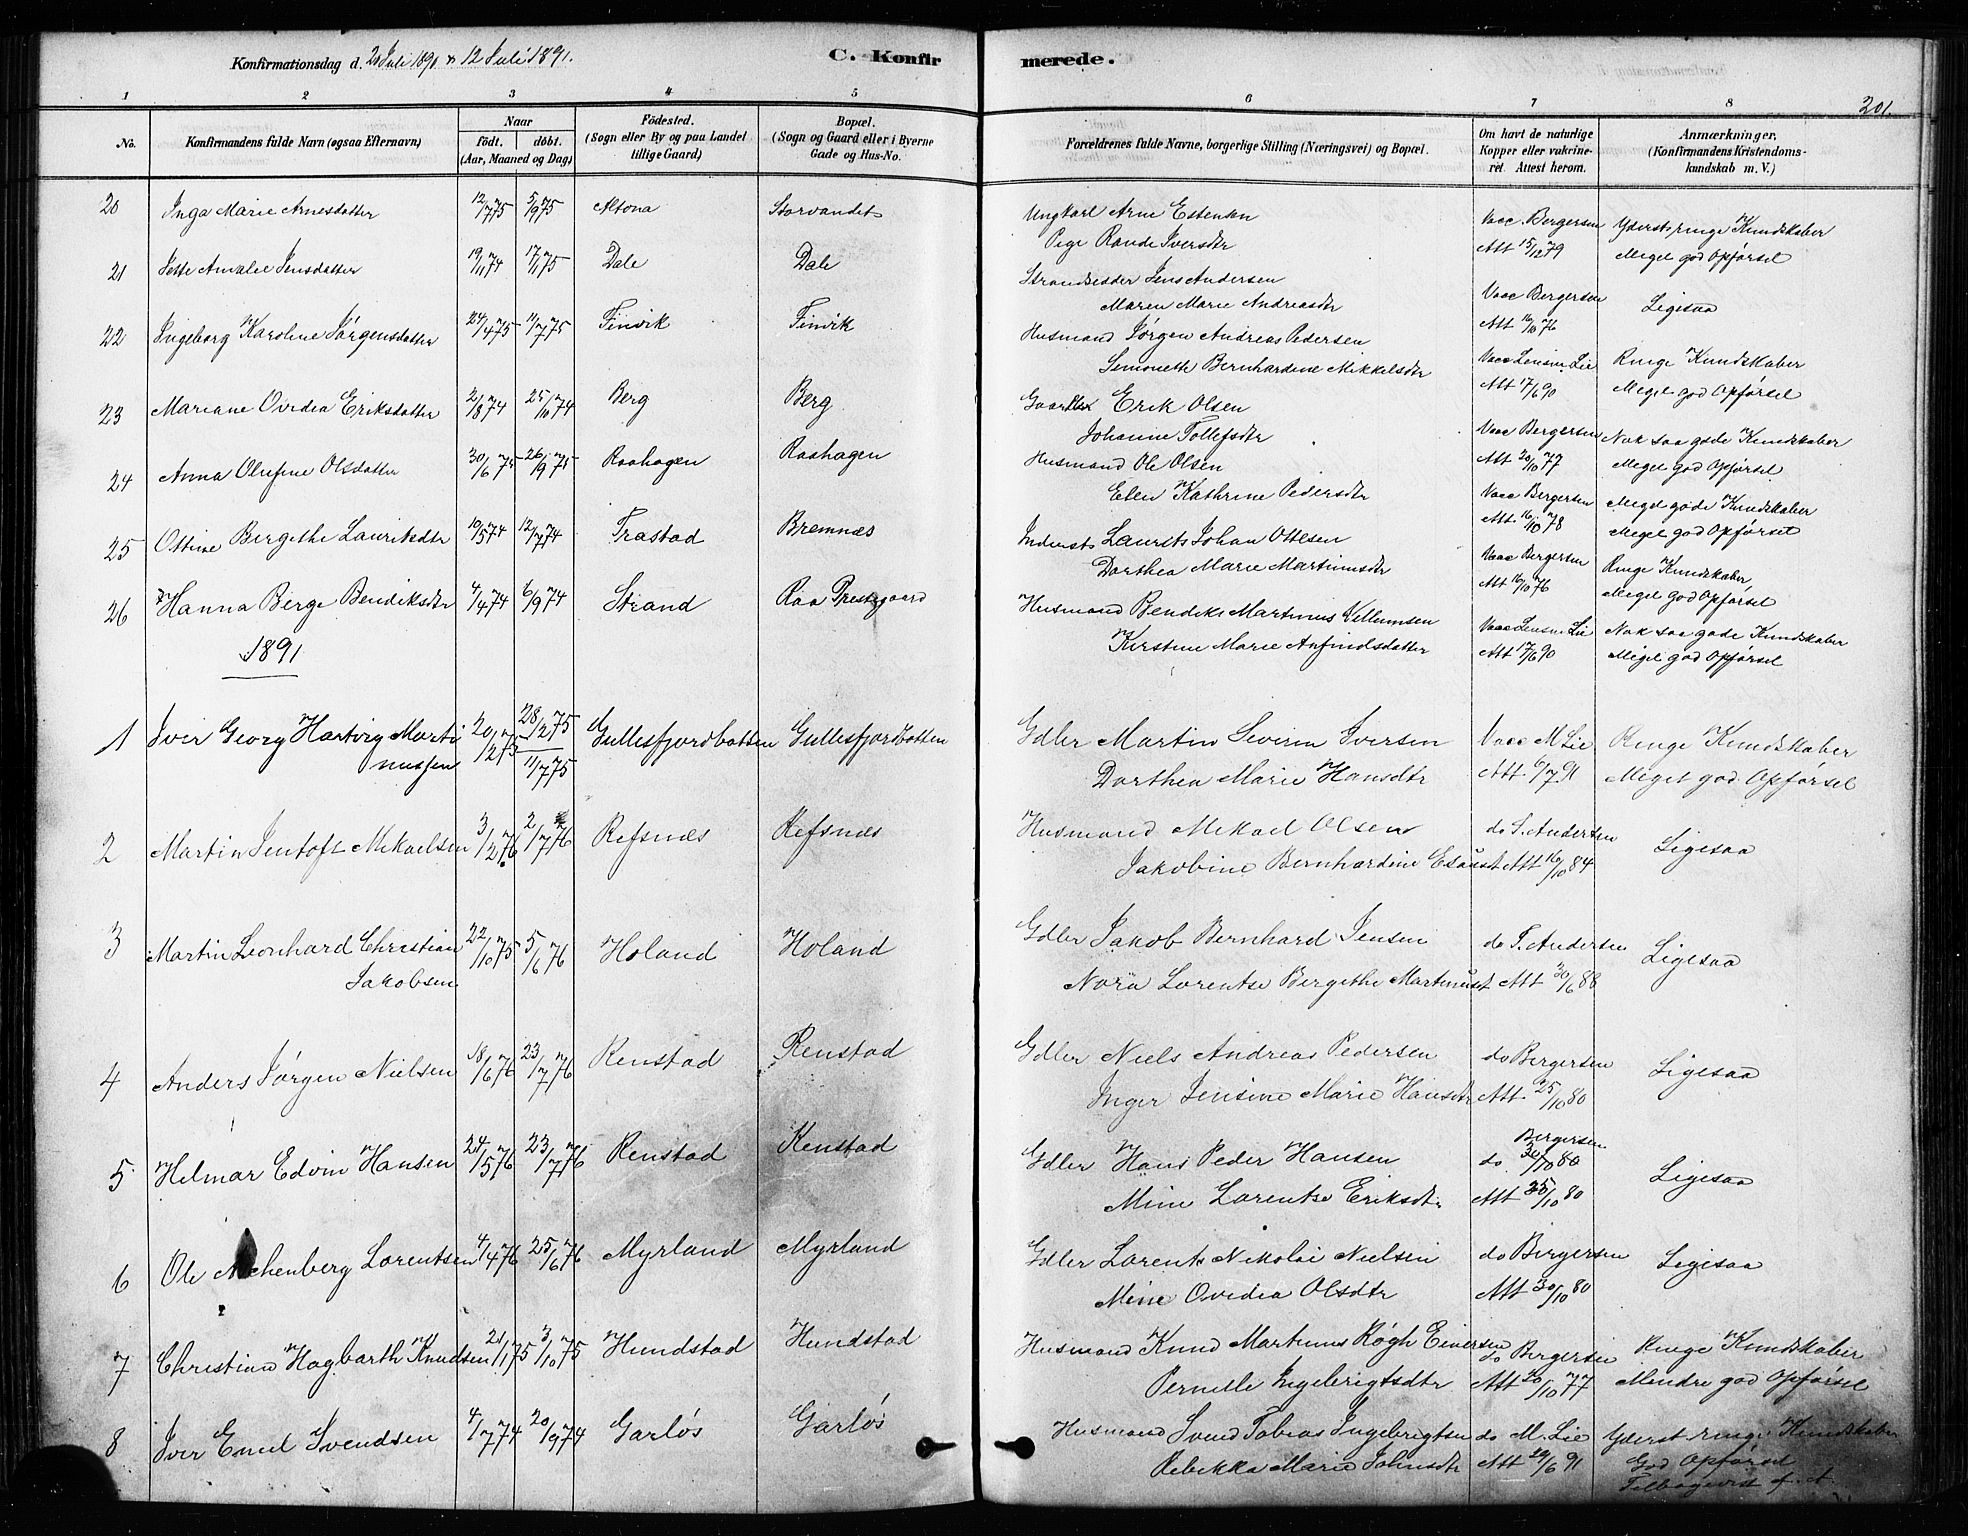 Konfirmationsdag d. 20 Juli 1890 & 12 Juli 1891. C. Konfirmerede. 201.
1 2 3 4 5 6 7 8
No. Konfirmandens fulde Navn (ogsaa Efternavn) Naar födt. döbt. (Aar, Maaned og Dag) Födested. (Sogn eller By og paa Landet tillige Gaard) Bopæl. (Sogn og Gaard eller i Byerne Gade og Hus-No. Forældrenes fulde Navne, borgerlige Stilling (Næringsvei) og Bopæl. Om havt de naturlige Kopper eller vakcineret. Attest herom. Anmærkninger. (Konfirmandens Kristendomskundskab m. V.)
20 Inga Marie Arnesdatter 12/7 75 5/9 75 Altona Storvandet Ungkarl Arne Estensen Vacc. Bergersen Yderst ringe Kundskaber
Pige Rande Iversdtr Att 15/12 79 Meget god Opførsel
21 Jette Amalie Jensdatter 19/11 74 17/1 75 Dale Dale Strandsidder Jens Andersen Vacc Bergersen Ligesaa
Maren Marie Andreasdtr Att 16/10 76
22 Ingeborg Karoline Jørgensdatter 24/4 75 11/7 75 Finvik Finvik Husmand Jørgen Andreas Pedersen Vacc Lensm. Lie Ringe Kundskaber
Simoneth Bernhardine Mikkelsdtr Att 17/6 90 Meget god Opførsel
23 Mariane Ovidia Eriksdatter 2/8 74 25/10 74 Berg Berg Erik Olsen Vacc Bergersen Nok saa gode Kundskaber
Johanne Tollefsdtr Att 20/10 77 Meget god Opførsel
24 Anna Olufine Olsdatter 30/6 75 26/9 75 Raahagen Raahagen Husmand Ole Olsen Vacc Bergersen Meget gode Kundskaber
Elen Kathrine Pedersdtr Att. 16/10 78 Meget god Opførsel
25 Ottine Bergithe Lauritsdtr 10/5 74 12/7 74 Trastad Bremnæs Inderst Laurits Johan Ottesen Vacc Bergersen Ringe Kundskaber
Dorthea Marie Martinusdtr Att 16/10 76 Meget god Opførsel
26 Hanna Berge Bendiksdtr 4/4 74 6/9 74 Strand Raa Prestegaard Husmand Bendiks Martinus Villumsen Vacc Lensm Lie Nok saa gode Kundskaber
Kirstine Marie Anfindsdatter Att 17/6 90 Meget god Opførsel
1891
1 Iver Georg Hartvig Martinussen 20/12 75 28/12 75 11/7 75 Gullesfjordbotten Gullesfjordbotten Gdler Martin Severin Iversen Vacc M Lie Ringe Kundskaber
Dorthea Marie Hansdtr Att. 6/7 91 Meget god Opførsel
2 Martin Jentoft Mikaelsen 3/12 76 2/7 76 Refsnæs Refsnæs Husmand Mikael Olsen do S. Andersen Ligesaa
Jakobine Bernhardine Esausdt Att 16/10 84
3 Martin Leonhard Christian Jakobsen 22/10 75 5/6 76 Holand Holand Gdler Jakob Bernhard Jensen do T. Andersen Ligesaa
Nora Lorentse Bergethe Martinusdt Att 30/6 88
4 Anders Jørgen Nielsen 18/6 76 23/7 76 Renstad Renstad Gdler Niels Andreas Pedersen do Bergersen Ligesaa
Inger Jensine Marie Hansdtr Att. 25/10 80
5 Helmar Edvin Hansen 24/5 76 23/7 76 Renstad Renstad Gdler Hans Peder Hansen do Bergersen 30/10 80 Ligesaa
Mine Lorentse Eriksdtr Att 25/10 80
6 Ole Lorentsen 4/4 76 25/6 76 Myrland Myrland Gdler Lorents Nikolai Nielsen do Bergersen Ligesaa
Mine Ovidia Olsdtr Att 30/10 80
7 Christian Hagbarth Knudsen 21/1 75 3/10 75 Hundstad Hundstad Husmand Knud Martinus Røgh Einersen do Bergersen Ringe Kundskaber
Pernelle Ingebrigtsdtr Att 20/10 77 Mindre god Opførsel
8 Iver Emil Svendsen 4/7 74 20/9 74 Garløs Garløs Husmand Svend Tobias Ingebrigtsen do M. Lie Yderst ringe Kundskaber
Rebekka Marie Johnsdtr Att 29/6 91 God Opførsel
Tilbagevist f. A.